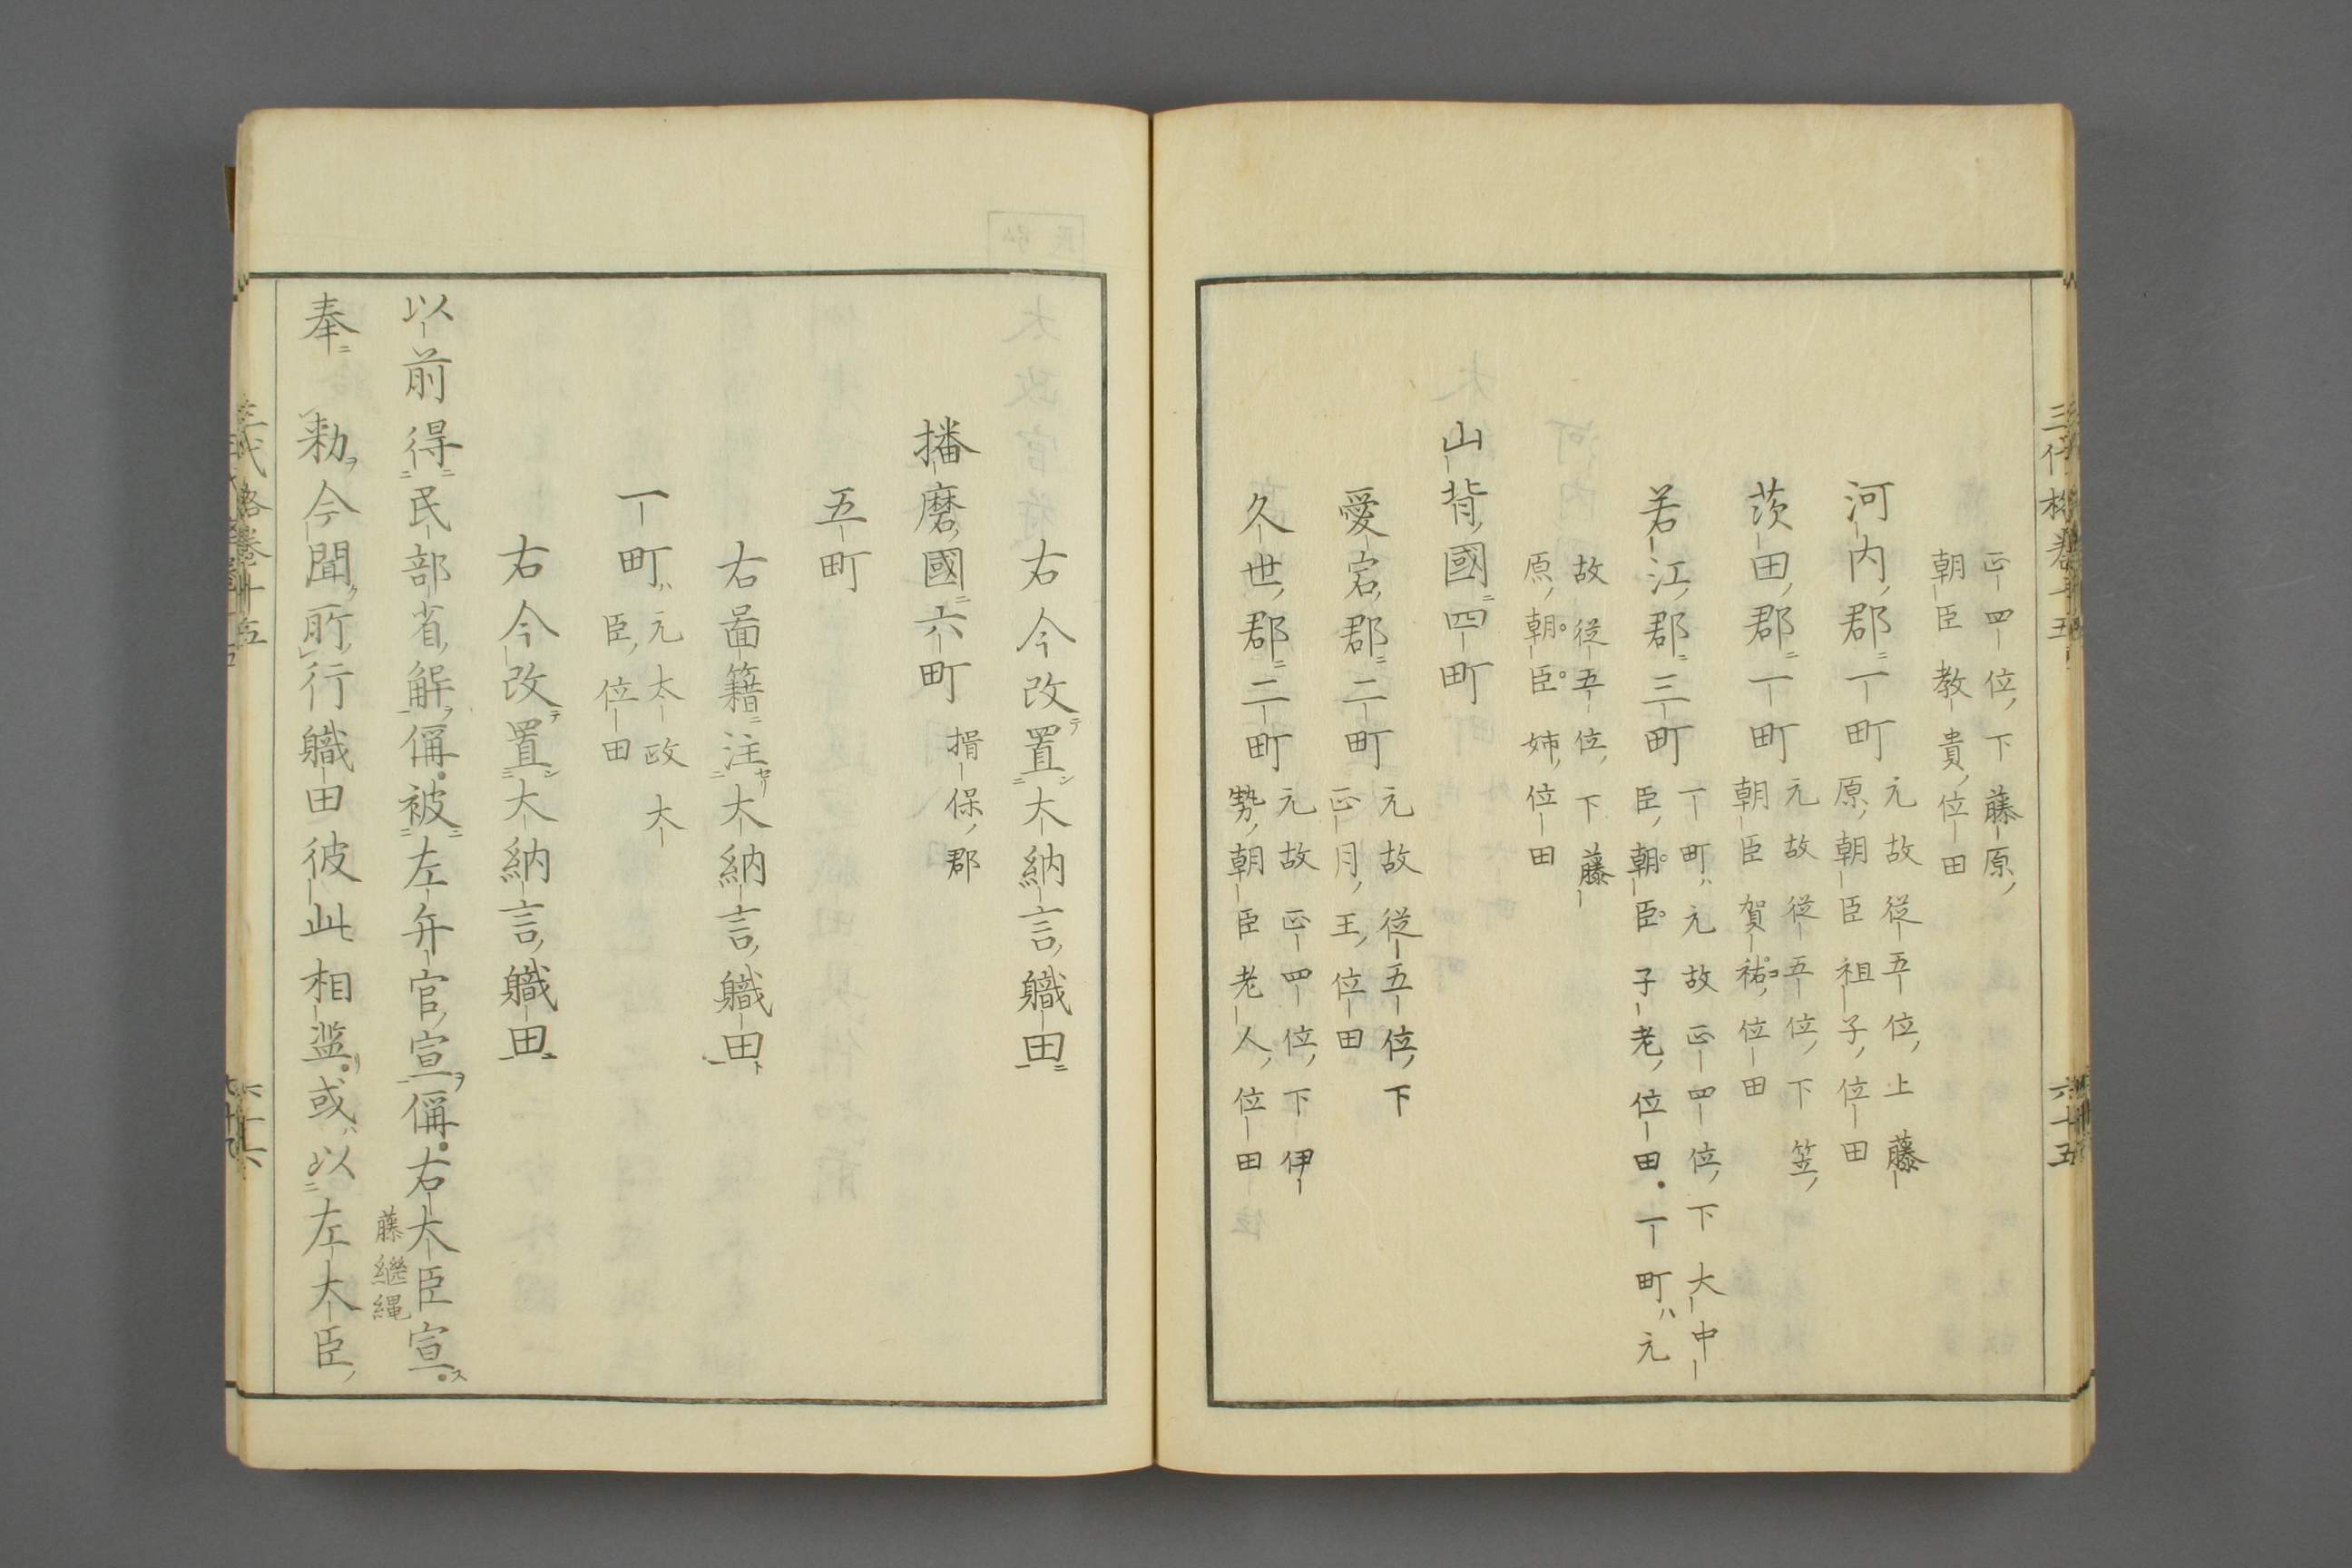 正四位下藤原
朝臣教貴位田
河内郡一町元故從五位上藤
原朝臣祖子位田
茨田郡一町元故從五位下笠
朝臣賀祐位田
若江郡三町一町元故正四位下大中
臣朝臣子老位田一町元
故從五位下藤
原朝臣姉位田
山背國四町
愛宕郡二町元故從五位下
正月王位田
久世郡二町元故正四位下伊
勢朝臣老人位田
右今改置大納言職田
播磨國六町揖保郡
五町
右啚籍注大納言職田
一町元太政大
臣位田
右今改置大納言職田
以前得民部省解偁被左弁官宣偁右大臣宣
藤繼縄
奉 勅今聞所行職田彼此相濫或以左大臣